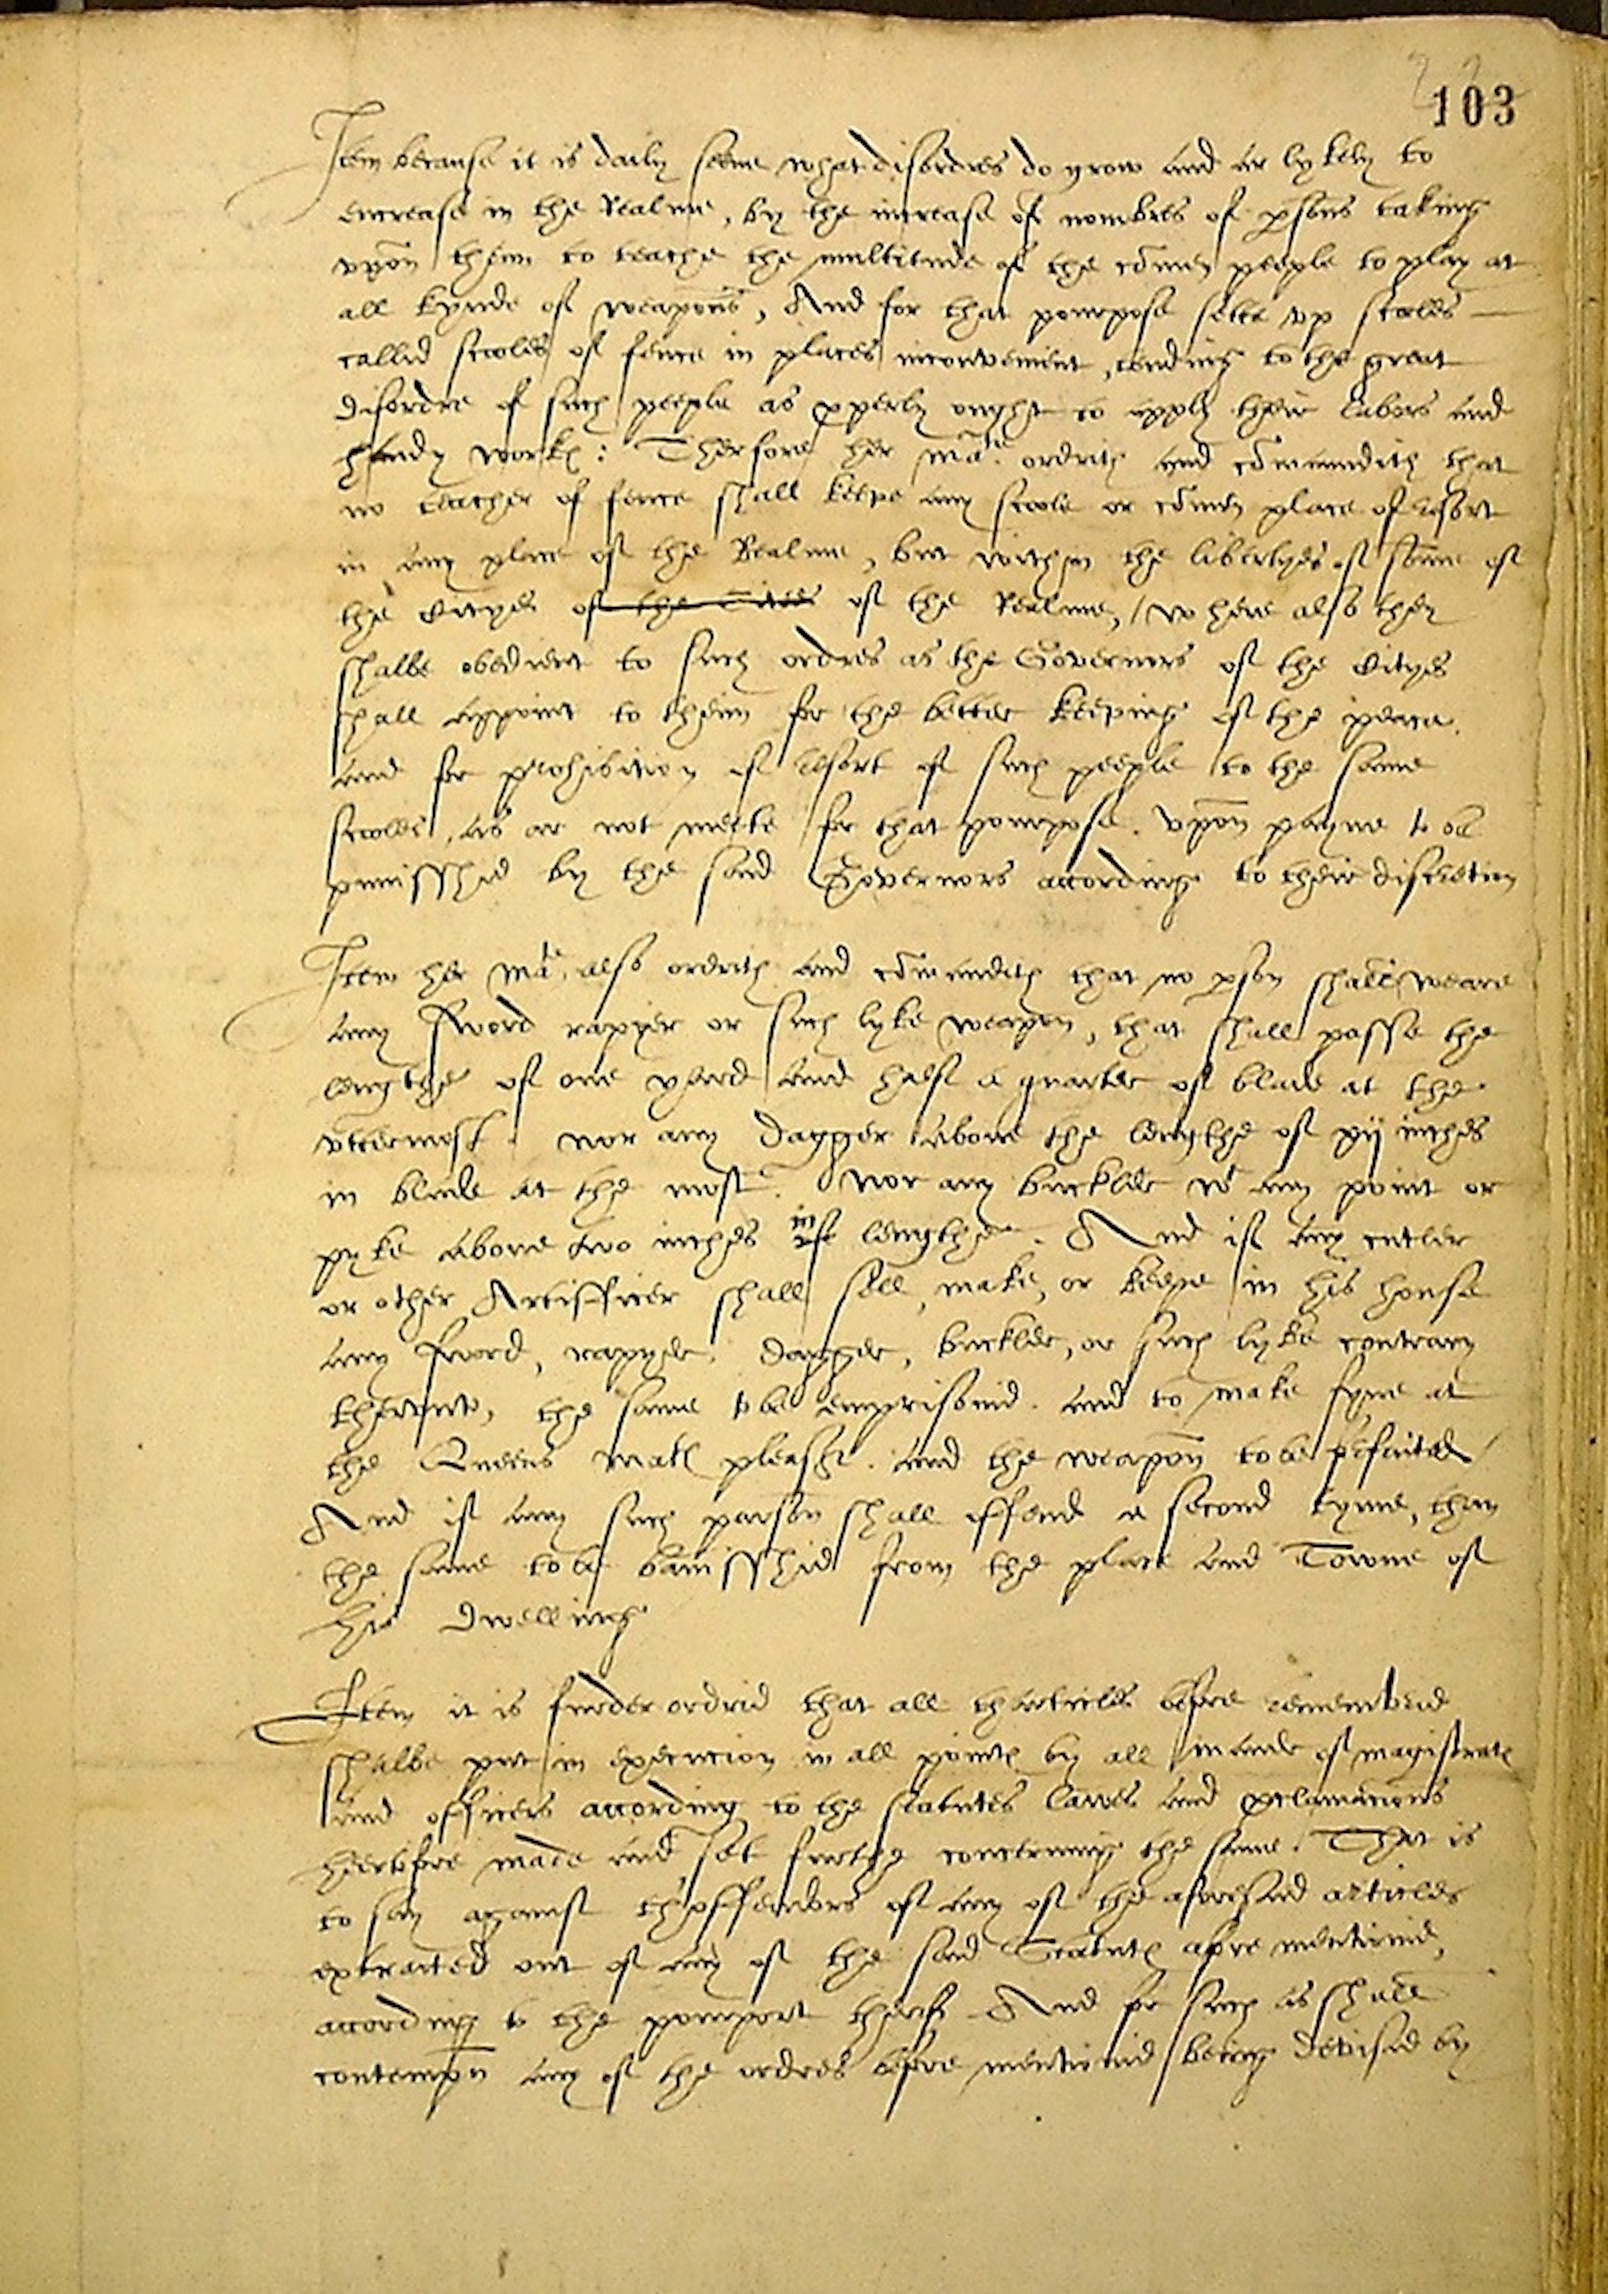 103
Item because it is daily seene what disordres do grow and ar lykely to
encrease in the Realme, by the increase of nombres of psons taking
vpon them to teache the multitude of the comen people to play at
all kynde of weapons, And for that pourpose sette vp scooles
callid scooles of fence in places inconvenient, tending to the great
disordre of such people as pperly ought to apply their labors and
handy work: Therfore her Matie ordrith and comaundith that
no teacher of fence shall keepe any scoole or comen place of resort
in any place of the Realme, but within the libertyes of some of
the Cityes of the Cities of the Realme, where also they
shalbe obedient to such ordres as the Governors of the Cityes
shall appoint to them for the better keeping of the peace.
and for prohibition of resort of such people to the same
scooles, as ar not meete for that pourpose. vpon payne to be
punisshed by the said Governors according to their discretion
Item her Matie also ordrith and comandith that no pson shall weare
any sword rapyer or such lyke weapon, that shall passe the
lengthe of one yerd and half a quarter of blade at the
vttermost. nor any dagger above the lengthe of xij inches
in blade at the most. Nor any buckler wt any point or
pyke above two inches in lengthe. And if any cutler
or other Artifficer shall sell, make, or keepe in his house
any sword, rapyer, dagger, buckler, or such lyke contrary
thervnto, the same to be emprisonid. and to make fyne at
the Queens Mats pleasure. and the weapon to be forfaited
And if any such parson shall offend a second tyme, than
the same to be banisshid from the place and Towne of
his dwelling
Item it is furder ordrid that all tharticles before remembrid
shalbe put in execution in all points by all maner of magistrats
and officers according to the statutes lawes and proclamacions
hertofore made and set furthe concerning the same. That is
to say against thoffendors of any of the aforesaid articles
extracted out of any of the said Statuts afore mentionid,
according to the pourport therof. And for such as shall
contempn any of the ordres before mentionid being devised by